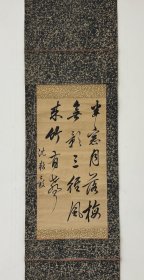 半窓月落梅
無影三徑風
来竹有聲